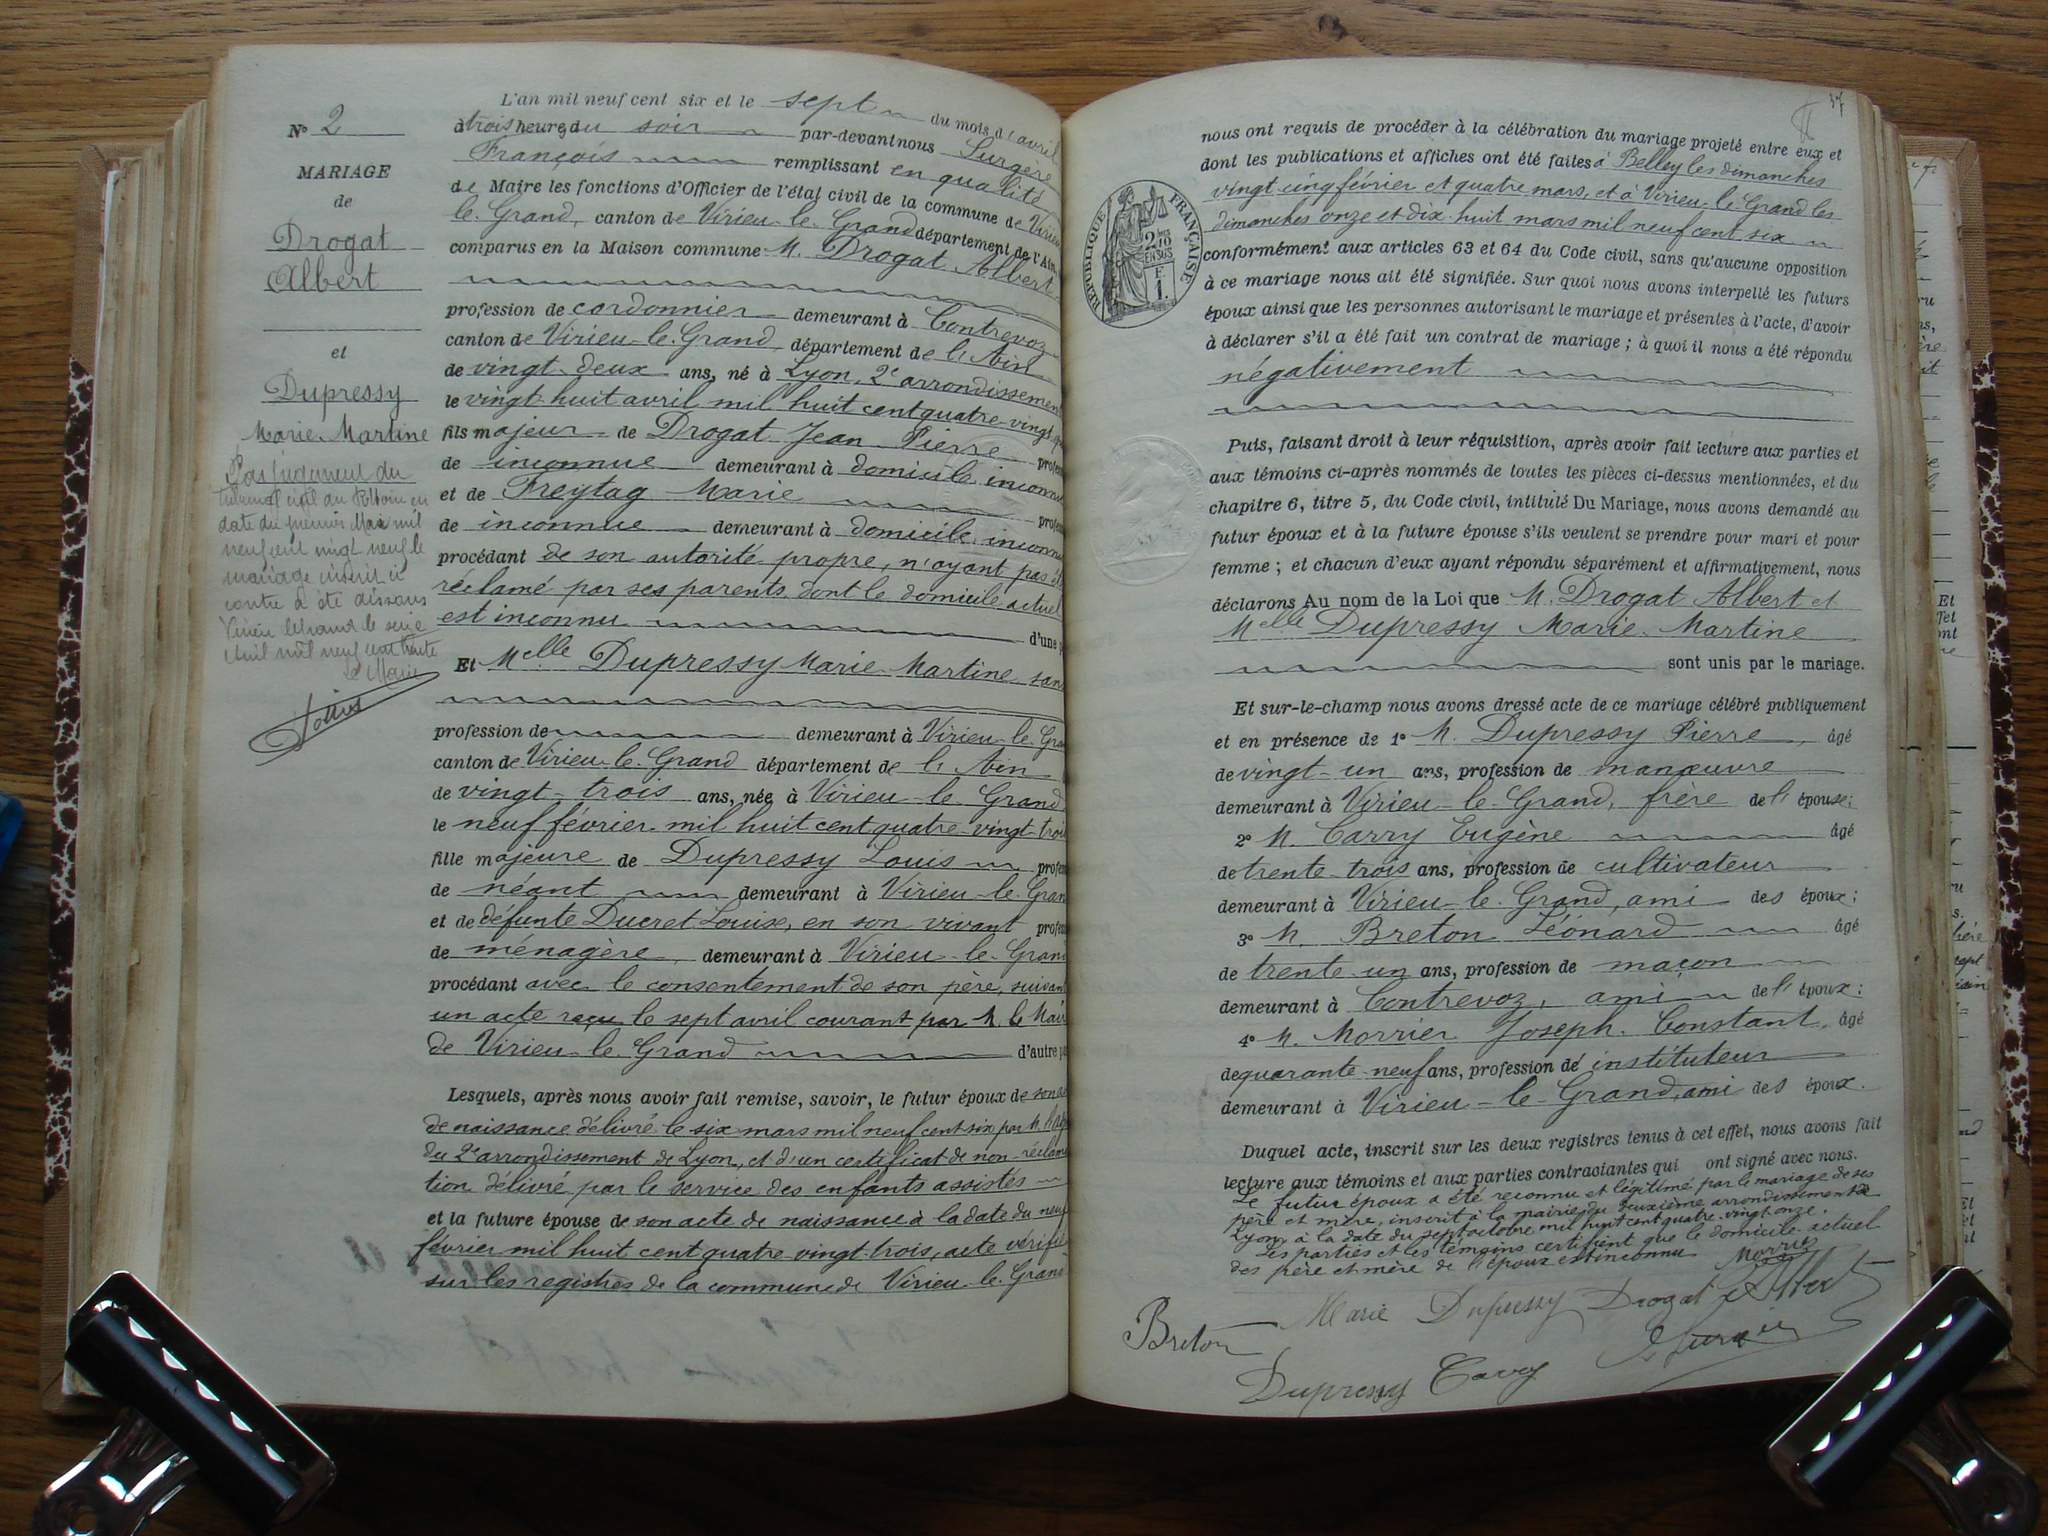 L'an mil neuf cent six et le sept du mois d'avril
à trois heures du soir par-devant nous Surgère
François remplissant en qualité
de Maire les fonctions d'Officier de l'état civil de la commune de Virieu
le-Grand, canton de Virieu-le-Grand département de l'Ain,
comparus en la Maison commune M. Drogat Albert
profession de cordonnier demeurant à Contrevoz
canton de Virieu-le-Grand, département de l'Ain
de vingt-deux ans, né à Lyon, 2e arrondissement
le vingt-huit avril mil huit cent quatre-vingt-
fils majeur de Drogat Jean Pierre
de inconnue demeurant à domicile inconnu
et de Freytag Marie
de inconnue demeurant à domicile inconnu
procédant de son autorité propre, n'ayant pas été
réclamé par ses parents dont le domicile actuel
est inconnu d'une
Et Melle Dupressy Marie Martine sans
profession de demeurant à Virieu-le-Grand
canton de Virieu-le-Grand département de l'Ain
de vingt-trois ans, née à Virieu-le-Grand
le neuf février mil huit cent quatre-vingt-trois
fille majeure de Dupressy Louis
de néant demeurant à Virieu-le-Grand
et de défunte Ducret Louise, en son vivant
de ménagère, demeurant à Virieu-le-Grand
procédant avec le consentement de son père, suivant
un acte reçu le sept avril courant par M. le Maire
de Virieu-le-Grand d'autre
Lesquels, après nous avoir fait remise, savoir, le futur époux de son
de naissance délivré le six mars mil neuf cent six par M.
du 2e arrondissement de Lyon, et d'un certificat de non-réclama
tion délivré par le service des enfants assistés
et la future épouse de son acte de naissance à la date du neuf
février mil huit cent quatre-vingt-trois, acte vérifié
sur les registres de la commune de Virieu-le-Grand
No 2
MARIAGE
de
Drogat
Albert
et
Dupressy
Marie-Martine
Par jugement du
tribunal civil du en
date du premier Mai mil
neuf cent vingt neuf le
mariage inscrit ci
contre a été dissous
Virieu le Grand le seize
Avril mil neuf cent trente
Le Maire
37
nous ont requis de procéder à la célébration du mariage projeté entre eux et
dont les publications et affiches ont été faites à Belley les dimanches
vingt-cinq février et quatre mars, et à Virieu-le-Grand les
dimanches onze et dix-huit mars mil neuf cent six
conformément aux articles 63 et 64 du Code civil, sans qu'aucune opposition
à ce mariage nous ait été signifiée. Sur quoi nous avons interpellé les futurs
époux ainsi que les personnes autorisant le mariage et présentes à l'acte, d'avoir
à déclarer s'il a été fait un contrat de mariage ; à quoi il nous a été répondu
négativement
RÉPUBLIQUE FRANÇAISE
2/10
EN SUS
F.
1.
Puis, faisant droit à leur réquisition, après avoir fait lecture aux parties et
aux témoins ci-après nommés de toutes les pièces ci-dessus mentionnées, et du
chapitre 6, titre 5, du Code civil, intitulé Du Mariage, nous avons demandé au
futur époux et à la future épouse s'ils veulent se prendre pour mari et pour
femme ; et chacun d'eux ayant répondu séparément et affirmativement, nous
déclarons Au nom de la Loi que M. Drogat Albert et
Melle Dupressy Marie-Martine
sont unis par le mariage.
Et sur-le-champ nous avons dressé acte de ce mariage célébré publiquement
et en présence de 1o M. Dupressy Pierre, âgé
de vingt-un ans, profession de manœuvre
demeurant à Virieu-le-Grand, frère de l'épouse ;
2o M. Carry Eugène âgé
de trente-trois ans, profession de cultivateur
demeurant à Virieu-le-Grand, ami des époux ;
3o M. Breton Léonard âgé
de trente-un ans, profession de maçon
demeurant à Contrevoz, ami de l'époux ;
4o M. Morrier Joseph-Constant, âgé
de quarante-neuf ans, profession de instituteur
demeurant à Virieu-le-Grand, ami des époux.
Duquel acte, inscrit sur les deux registres tenus à cet effet, nous avons fait
lecture aux témoins et aux parties contractantes qui ont signé avec nous.
Le futur époux a été reconnu et légitimé par le mariage de ses
père et mère, inscrit à la mairie du deuxième arrondissement de
Lyon, à la date du sept octobre mil huit cent quatre-vingt-onze.
Les parties et les témoins certifient que le domicile actuel
des père et mère de l'époux est inconnu Morrier
Marie Dupressy Drogat Albert
Breton
Dupressy Carry